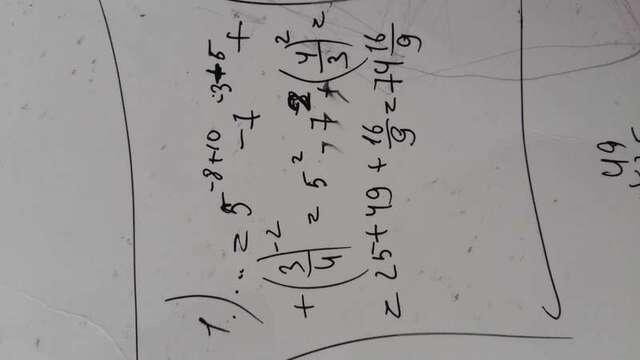 1.) ... = 5^{-8+10} - 7^{-3+5} +
+ (3/4)^{-2} = 5^2 - 7^2 + (4/3)^2 =
= 25 + 49 + 16/9 = 74 16/9
49